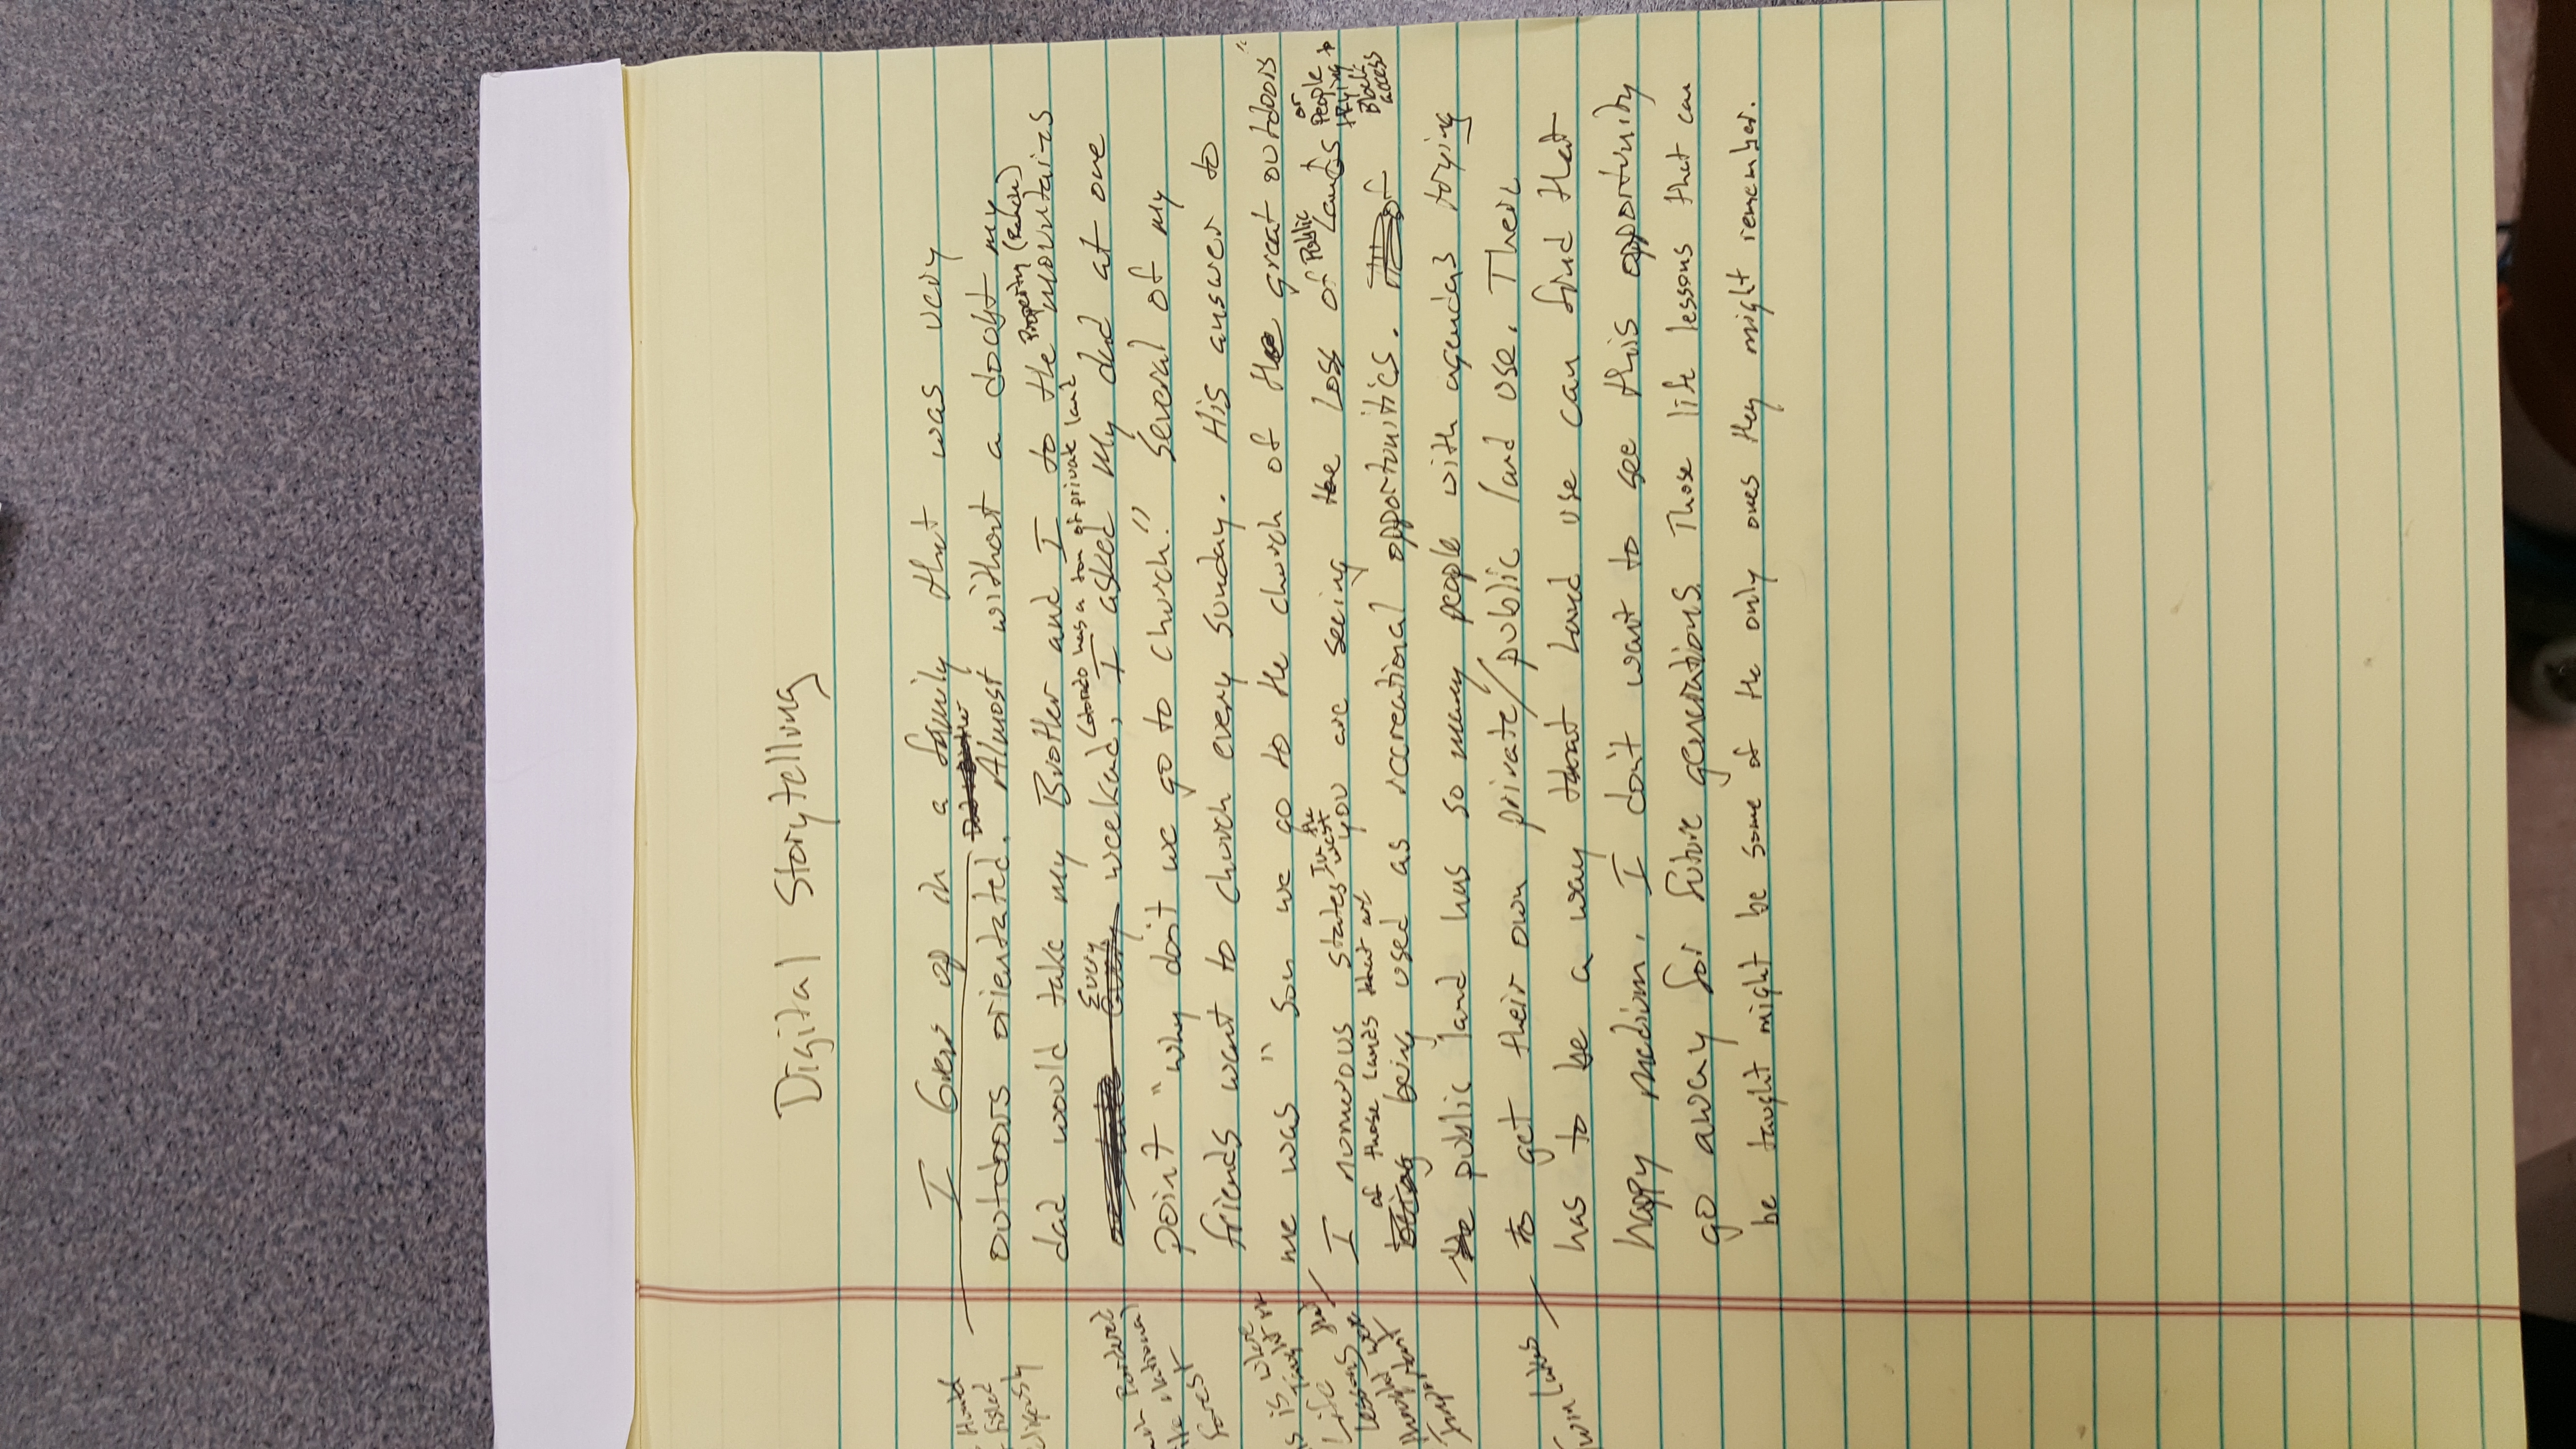 Digital Storytelling
I Grew up in a family that was very
outdoors orientated. Almost without a doubt my
Property (Ranch)
dad would take my Brother and I to the mountains
Every
Colorado has a ton of private land
weekend, I asked my dad at one
point "why don't we go to church." Several of my
friends went to church every sunday. His answer to
me was "Son we go to the church of the great outdoors"
I numerous states In the west you are seeing the loss of Public Lands or People trying to Block access
of those lands that are
being used as recreational opportunities.
public land has so many people with agendas trying
to get their own private/public land use. There
has to be a way that land use can find that
happy medium. I don't want to see this opportunity
go away for future generations. Those life lessons that can
be taught might be some of the only ones they might remember.
Hunted
fished
Bordered
National
Forest
is where
Life
Lessons were
family
Twin Lakes